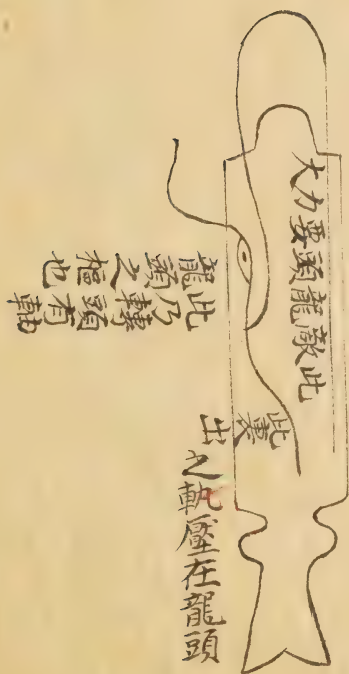 此敵龍頭要力大
此乃轉頭有軸
龍頭之樞也
此裏
出之軌壓在龍頭